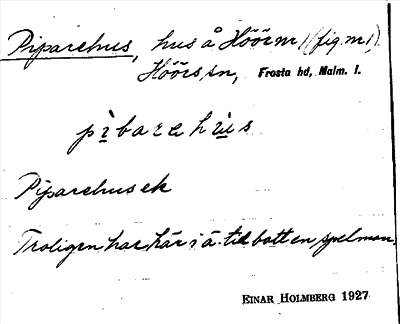 Piparehus, hus å Höörm 1 (fig. m 1).
Höörs sn, Frosta hd, Malm. l.
pibarehus
Piparehusek
Troligen har här i ä. tid bott en spelman.
EINAR HOLMBERG 1927